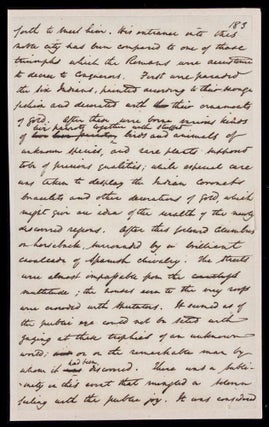 183
forth to meet him. His entrance into this
noble city has been compared to one of those
triumphs which the Romans were accustomed
to decree to Conquerors. First were paraded
the six Indians, painted according to their savage
fashion and decorated with their ornaments
of Gold. After these were borne various kinds
live parrots together with stuffed
of birds and animals of
unknown species, and rare plants supposed
to be of precious qualities; while especial care
was taken to display the Indian Coronets
bracelets and other decorations of Gold, which
might give an idea of the wealth of the newly
discovered regions. After this followed Columbus
on horseback, surrounded by a brilliant
cavalcade of Spanish chivalry. The streets
were almost impassable from the
multitude; the houses even to the very roofs
were crowded with spectators. It seemed as if
the public eye could not be sated with
gazing at these trophies of an unknown
world; or on the remarkable man by
had been
whom it discovered. There was a subli-
mity in this event that mingled a solemn
feeling with the public joy. It was considered